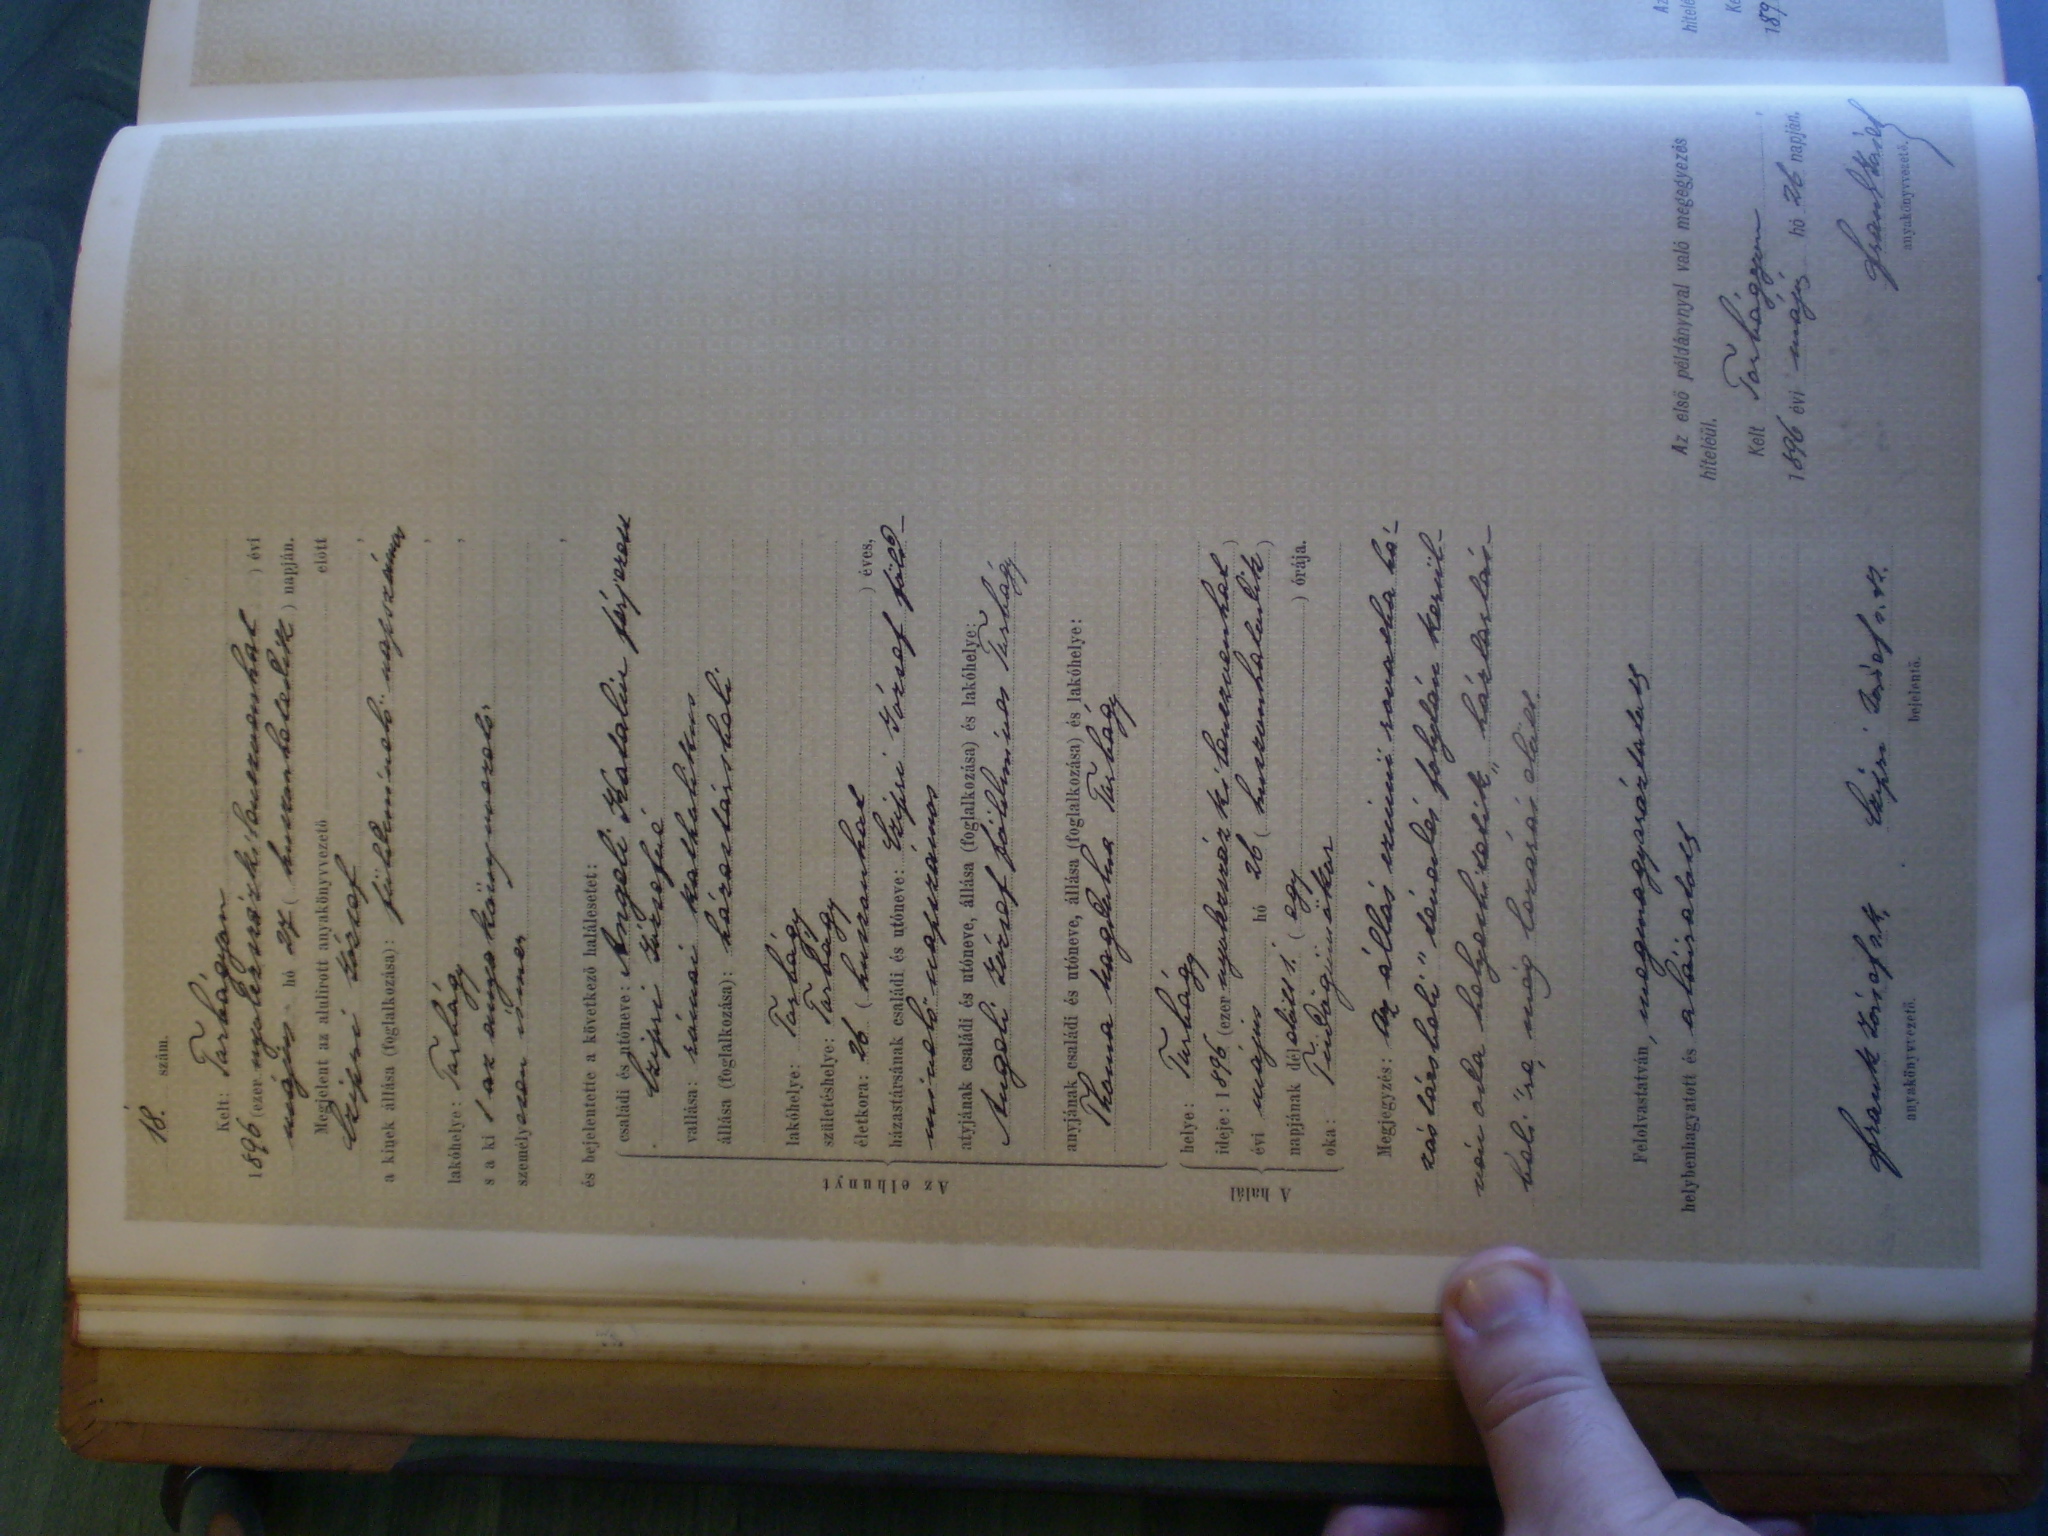 18. szám.
Kelt: Torbágyon
1896 (ezer nyolczszázkilenczvenhat) évi
május hó 27 (huszonhetedik) napján.
Megjelent az alulirott anyakönyvvezető előtt
Czipri József,
a kinek állása (foglalkozása): földmívelő napszámos,
lakóhelye: Torbágy,
s a ki az anyakönyvvezető
személyesen ismer,
és bejelentette a következő halálesetet:
Az elhunyt
családi és utóneve: Angeli Katalin férjezett
Czipri Józsefné
vallása: római katholikus
állása (foglalkozása): háztartásbeli
lakóhelye: Torbágy
születéshelye: Torbágy
életkora: 26 (huszonhat) éves,
házastársának családi és utóneve: Czipri József föld-
mívelő napszámos
atyjának családi és utóneve, állása (foglalkozása) és lakóhelye:
Angeli József földmíves Torbágy
anyjának családi és utóneve, állása (foglalkozása) és lakóhelye:
Thoma Magdolna Torbágy
A halál
helye: Torbágy
ideje: 1896 (ezer nyolczszázkilenczvenhat)
évi május hó 26 (huszonhatodik)
napjának délelőtt 1 (egy) órája.
oka: Tüdőgümőkór
Megjegyzés: Az állás czímű rovatba há-
zastársbeli" tévedés folytán kerül-
vén oda helyesbíttetik „háztartás-
beli"re, még lezárás előtt.
Felolvastatván, megmagyaráztatott
helybenhagyatott és aláíratott
Frank József s.k. Czipri József s.k.
anyakönyvvezető. bejelentő.
Az első példánynyal való megegyezés
hiteléül.
Kelt Torbágyon,
1896 évi május hó 26 napján.
Frank József
anyakönyvvezető.
Az
hitelé
Ke
189